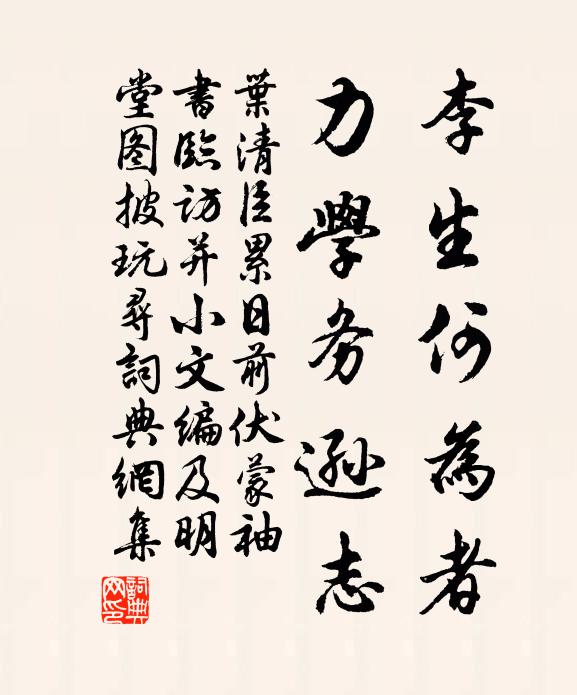 李生何為者
力學务遜志
葉清臣累日前伏蒙袖
書臨訪并小文編及明
堂图披玩尋詞典網集
詞典网印